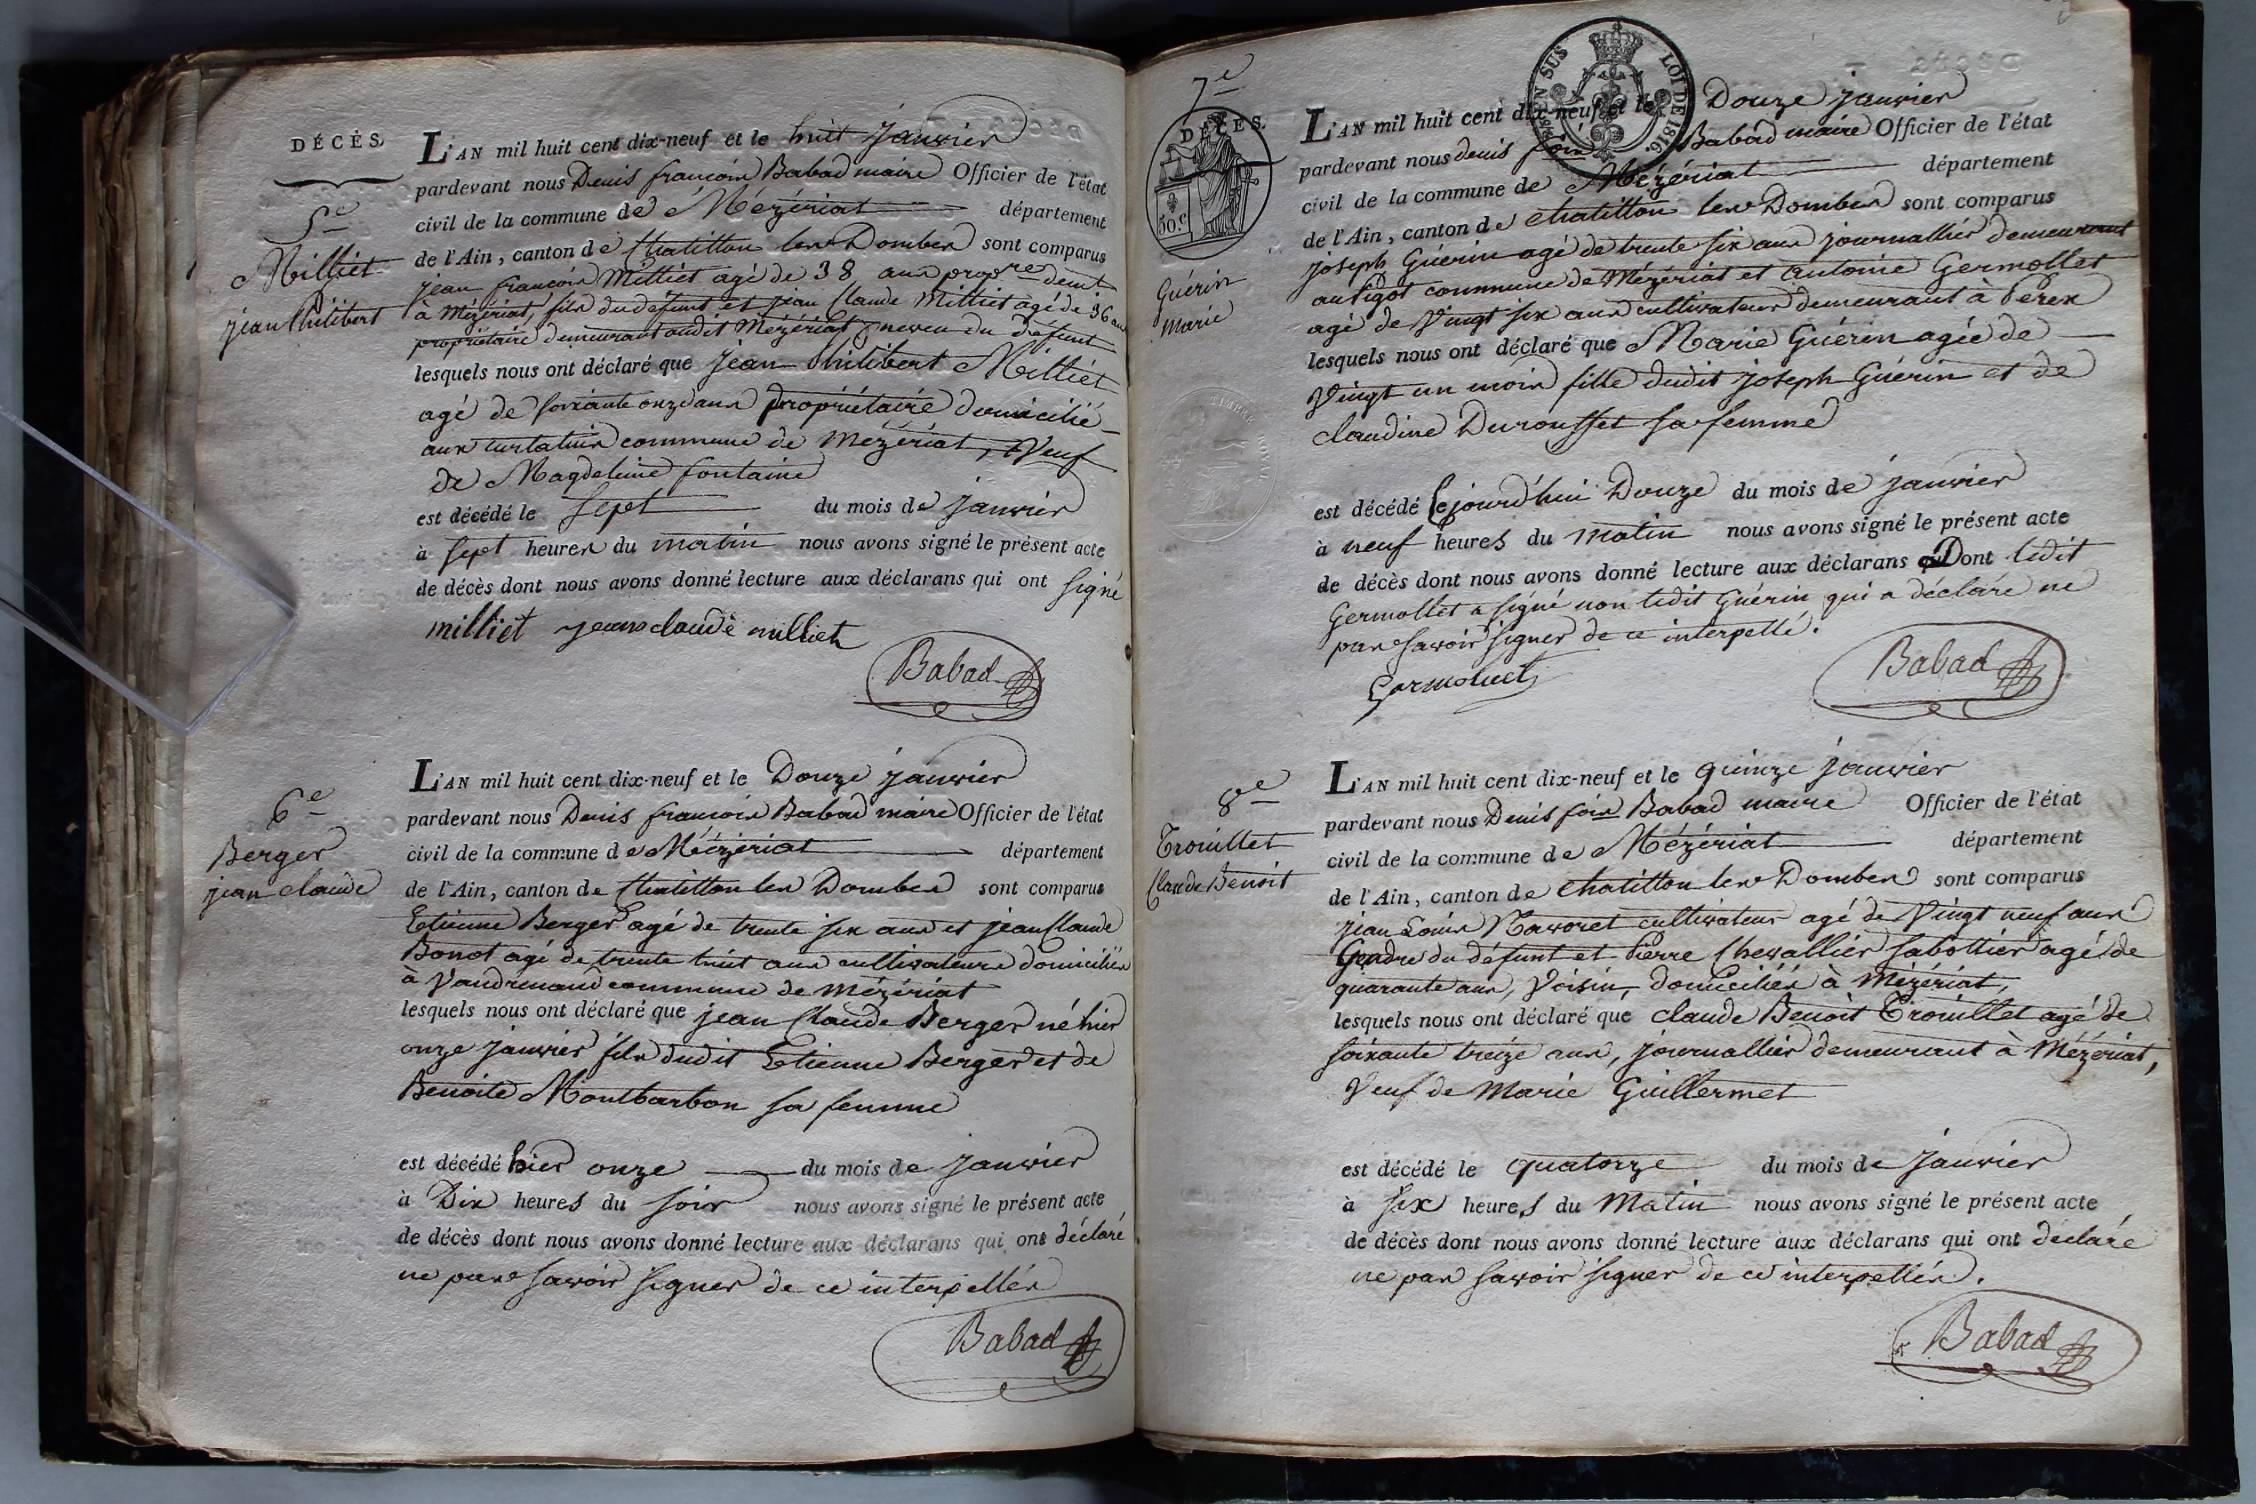 DÉCÈS.
5e
Milliet
jean Philibert
L'AN mil huit cent dix-neuf et le huit janvier
pardevant nous Denis françois Babad maire Officier de l'état
civil de la commune de Mézériat département
de l'Ain, canton de Chatillon les Dombes sont comparus
jean françois Milliet agé de 38 ans propre demt
à Mézériat, fils du défunt et jean Claude Milliet agé de 36 ans
propriétaire demeurant audit Mézériat, neveu du défunt
lesquels nous ont déclaré que jean Philibert Milliet
agé de soixante onze ans propriétaire domicilié
aux curtatins commune de Mézériat, Veuf
de Magdeleine fontaine
est décédé le sept du mois de janvier
à sept heures du matin nous avons signé le présent acte
de décès dont nous avons donné lecture aux déclarans qui ont signé
milliet jean claude milliet
Babad
6e
Berger
jean claude
L'AN mil huit cent dix-neuf et le Douze janvier
pardevant nous Denis françois Babad maire Officier de l'état
civil de la commune de Mézériat département
de l'Ain, canton de Chatillon les Dombes sont comparus
Etienne Berger agé de trente six ans et jean Claude
Bonot agé de trente huit ans cultivateurs domiciliés
à Vandrenand commune de Mézériat
lesquels nous ont déclaré que jean Claude Berger né hier
onze janvier fils dudit Etienne Berger et de
Benoite Montbarbon sa femme
est décédé hier onze du mois de janvier
à Dix heures du soir nous avons signé le présent acte
de décès dont nous avons donné lecture aux déclarans qui ont déclaré
ne pas savoir signer de ce interpellés
Babad
7e
DÉCÈS.
50 c.
EN SUS
LOI DE 1816.
Guérin
Marie
L'AN mil huit cent dix-neuf et le Douze janvier
pardevant nous denis fois Babad maire Officier de l'état
civil de la commune de Mézériat département
de l'Ain, canton de Chatillon les Dombes sont comparus
joseph Guérin agé de trente six ans journallier demeurant
au ligot commune de Mézériat et antoine Germollet
agé de Vingt six ans cultivateur demeurant à Perex
lesquels nous ont déclaré que Marie Guérin agée de
Vingt un mois fille dudit joseph Guérin et de
claudine Durousset sa femme
est décédé cejourd'hui Douze du mois de janvier
à neuf heures du matin nous avons signé le présent acte
de décès dont nous avons donné lecture aux déclarans Dont ledit
Germollet a signé non ledit Guérin qui a déclaré ne
pas savoir signer de ce interpellé.
Germolliet
Babad
8e
Trouillet
Claude Benoit
L'AN mil huit cent dix-neuf et le quinze janvier
pardevant nous Denis fois Babad maire Officier de l'état
civil de la commune de Mézériat département
de l'Ain, canton de Chatillon les Dombes sont comparus
jean Louis Navoret cultivateur agé de Vingt neuf ans
Gendre du défunt et Pierre Chevallier sabottier agé de
quarante ans, Voisin, domiciliés à Mézériat,
lesquels nous ont déclaré que claude Benoit Trouillet agé de
soixante treize ans, journallier demeurant à Mézériat,
Veuf de Marie Guillermet
est décédé le quatorze du mois de janvier
à six heures du Matin nous avons signé le présent acte
de décès dont nous avons donné lecture aux déclarans qui ont déclaré
ne pas savoir signer de ce interpellés.
Babad